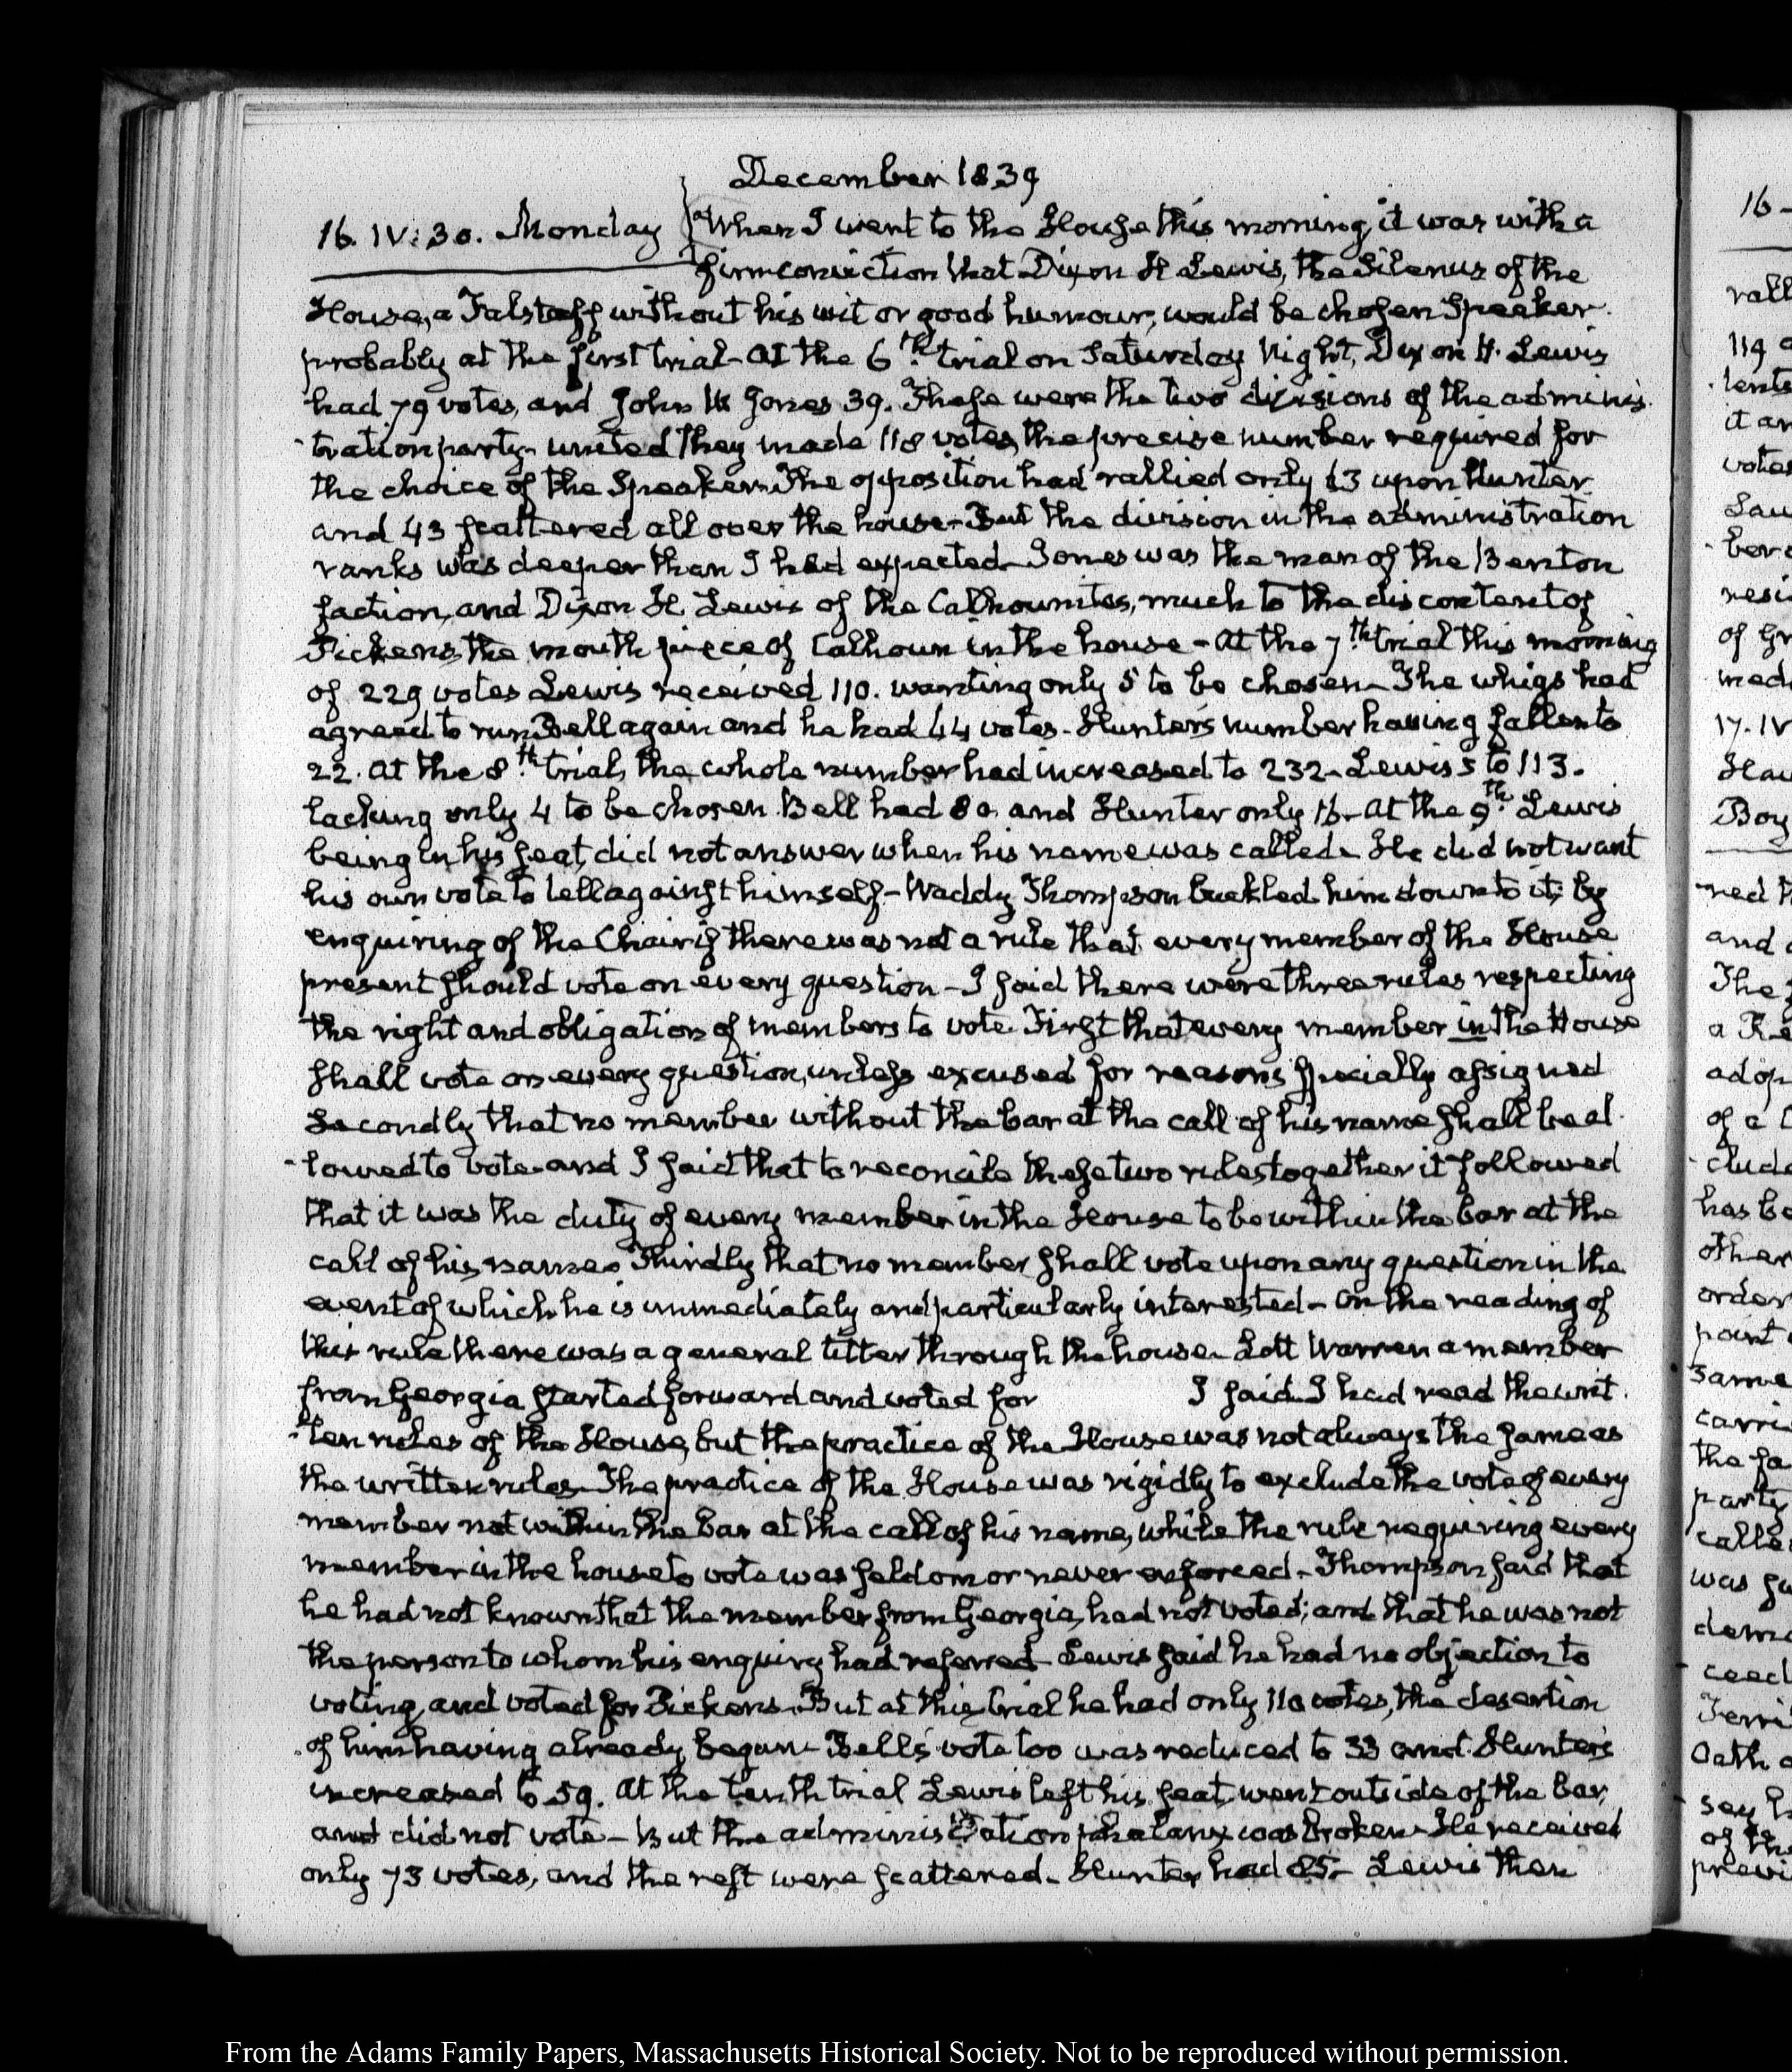 December 1839
16. IV: 30. Monday When I went to the House this morning, it was with a
firm conviction that Dixon H Lewis, the Silenus of the
House, a Falstaff without his wit or good humour, would be chosen Speaker.
probably at the first trial- At the 6.th trial on Saturday Night, Dixon H. Lewis
had 79 votes, and John W Jones 39. These were the two divisions of the adminis-
-tration party- united they made 118 votes, the precise number required for
the choice of the Speaker- The opposition had rallied only 63 upon Hunter
and 43 scattered all over the house- But the division in the administration
ranks was deeper than I had expected- Jones was the man of the Benton
faction, and Dixon H. Lewis of the Calhounites, much to the discontent of
Pickens, the mouth piece of Calhoun in the house- At the 7.th trial this morning
of 229 votes Lewis received 110. wanting only 5 to be chosen- The whigs had
agreed to run Bell again and he had 64 votes- Hunter's number having fallen to
22. At the 8.th trial, the whole number had increased to 232- Lewis's to 113.
lacking only 4 to be chosen. Bell had 80 and Hunter only 16- At the 9.th Lewis
being in his seat, did not answer when his name was called- He did not want
his own vote to tell against himself- Waddy Thompson buckled him down to it; by
enquiring of the Chair if there was not a rule that every member of the House
present should vote on every question- I said there were three rules respecting
the right and obligation of members to vote. First that every member in the House
shall vote on every question, unless excused for reasons specially assigned
Secondly that no member without the bar at the call of his name shall be al-
-lowed to vote- and I said that to reconcile these two rules together it followed
that it was the duty of every member in the House to be within the bar at the
call of his name- Thirdly that no member shall vote upon any question in the
event of which he is immediately and particularly interested- On the reading of
this rule there was a general titter through the house- Lott Warren a member
from Georgia started forward and voted for I said I had read the writ-
-ten rules of the House, but the practice of the House was not always the same as
the written rules- The practice of the House was rigidly to exclude the vote of every
member not within the bar at the call of his name, while the rule requiring every
member in the house to vote was seldom or never enforced- Thompson said that
he had not known that the member from Georgia, had not voted; and that he was not
the person to whom his enquiry had referred- Lewis said he had no objection to
voting, and voted for Pickens- But at this trial he had only 110 votes, the desertion
of him having already begun- Bell's vote too was reduced to 33 and Hunter's
increased to 59. At the tenth trial Lewis left his seat went outside of the bar,
and did not vote- But the administration phalanx was broken- He received
only 73 votes, and the rest were scattered- Hunter had 85- Lewis then
From the Adams Family Papers, Massachusetts Historical Society. Not to be reproduced without permission.